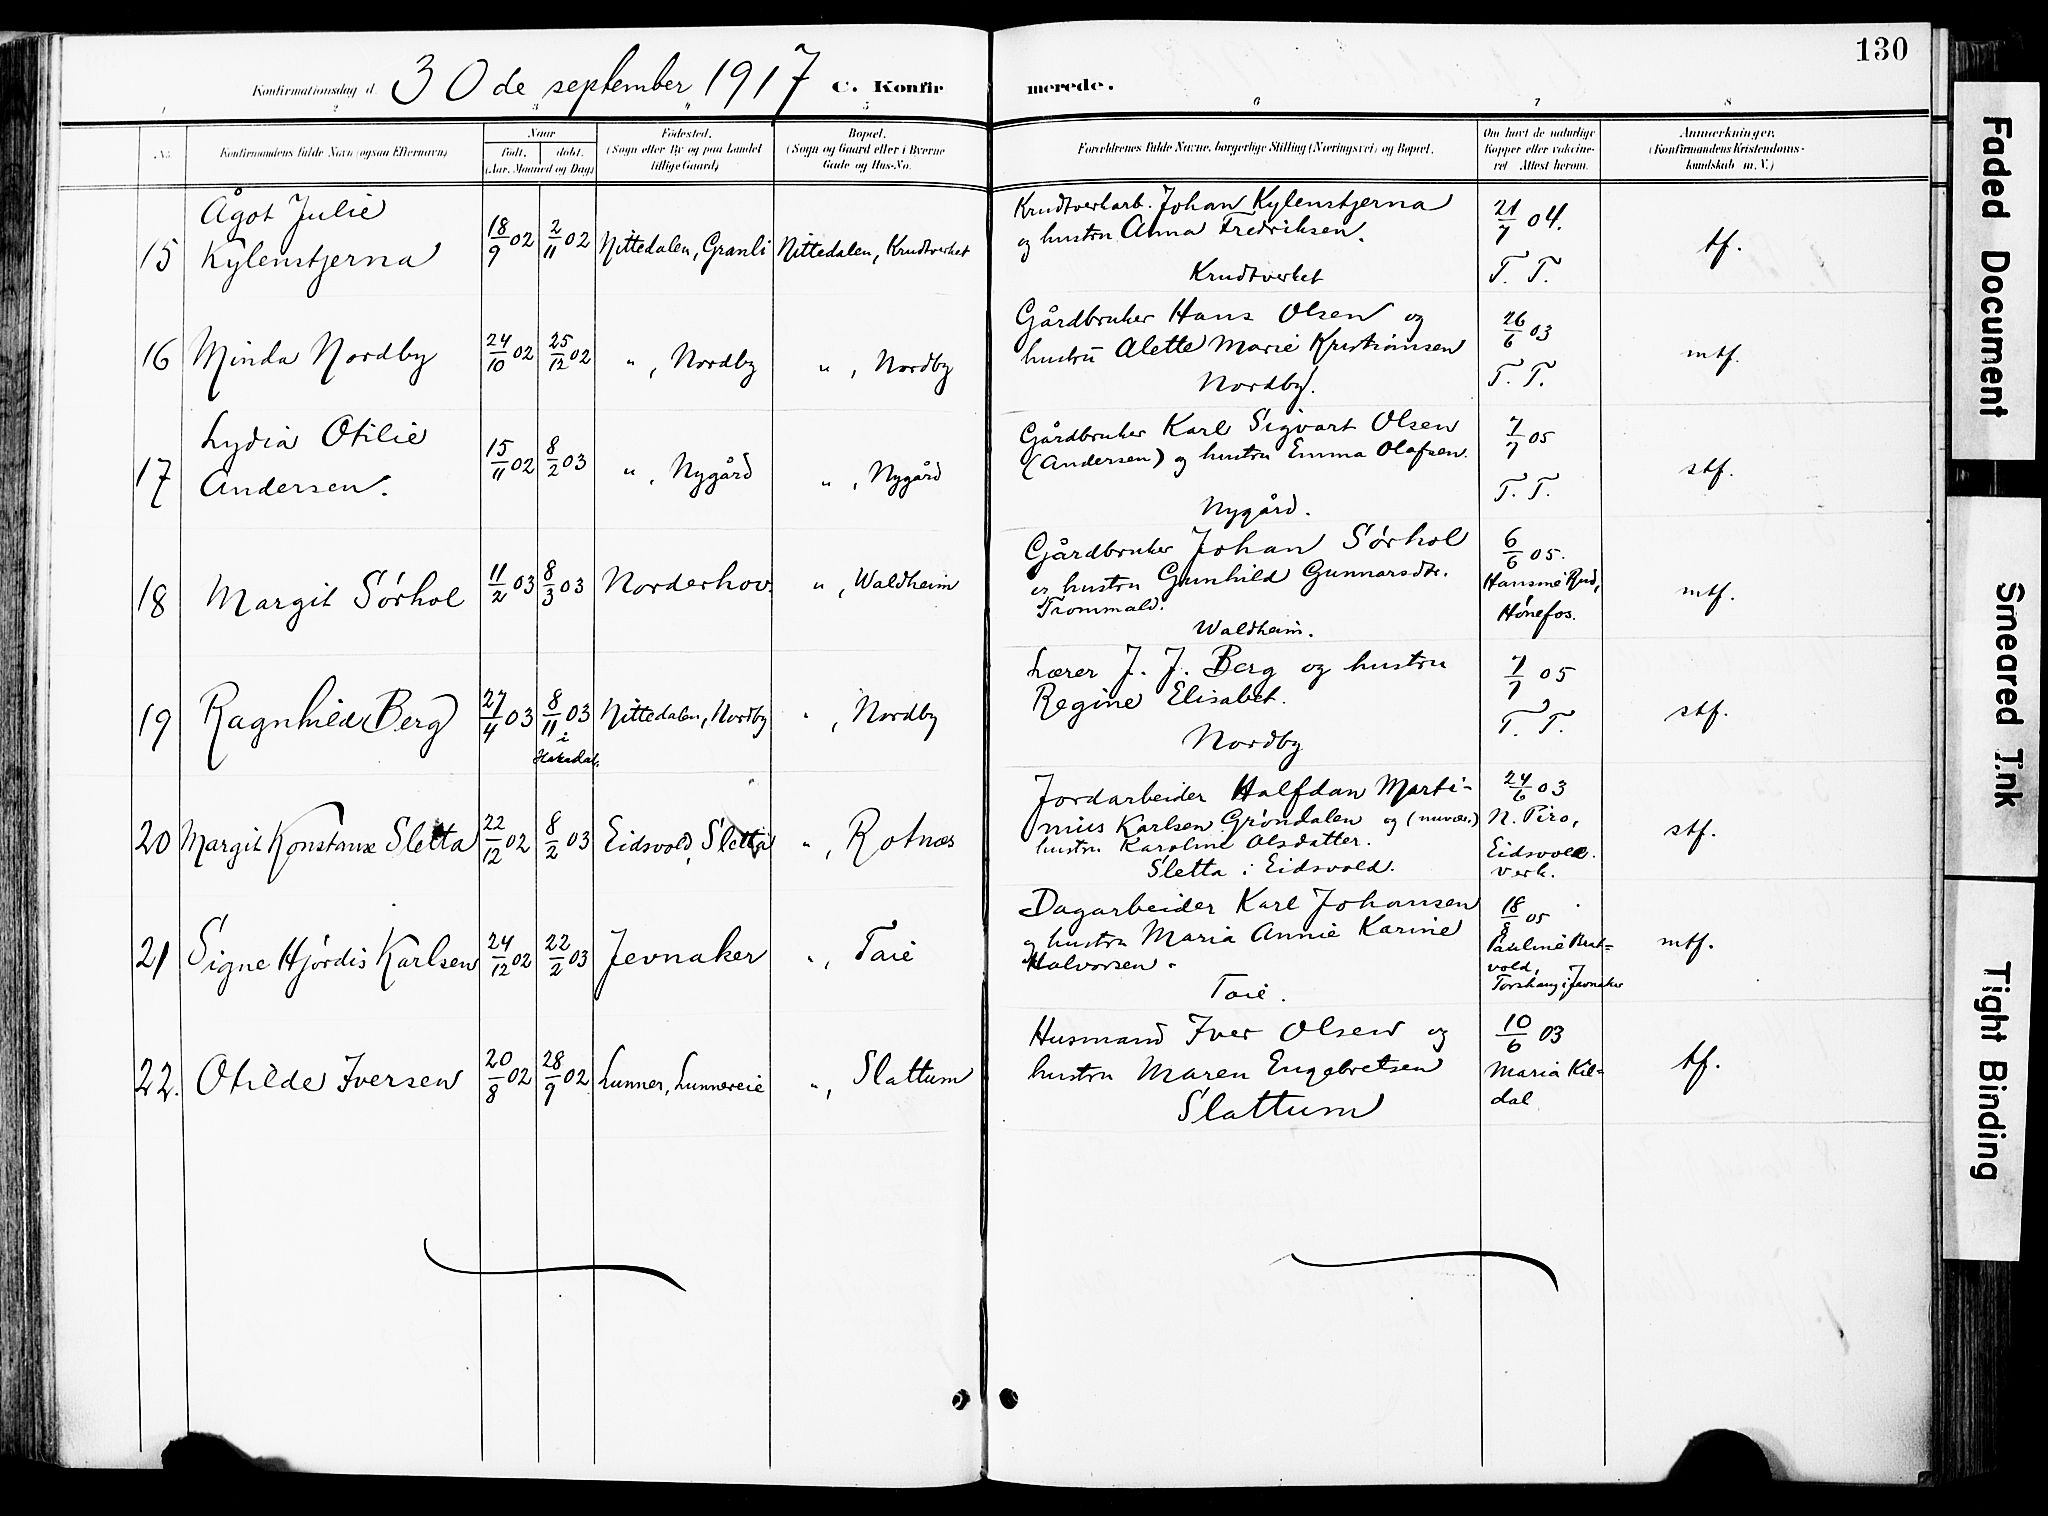 130
Konfirmationsdag d. 30 de september 1917 C. Konfirmerede.
1 2 3 4 5 6 7 8
No. Konfirmandens fulde Navn (ogsaa Efternavn)
Naar født, døbt. (Aar, Maaned og Dag)
Fødested. (Sogn eller By og paa Landet tillige Gaard)
Bopæl. (Sogn og Gaard eller i Byerne Gade og Hus-No.
Forældrenes fulde Navne, borgerlige Stilling (Næringsvei) og Bopæl.
Om havt de naturlige Kopper eller vaccineret Attest herom.
Anmerkninger. (Konfirmandens Kristendomskundskab m. V.)
15 Ågot Julie Kylenstjerna 18/9 02 2/11 02 Nittedalen, Granli Nittedalen, Krudtverket
Krudtverkarb. Johan Kylenstjerna
og hustru Anna Fredriksen.
Krudtverket
21/7 04. T. T. tf.
16 Minda Nordby 24/10 02 25/12 02 " , Nordby " , Nordby
Gårdbruker Hans Olsen og
hustru Alette Marie Kristiansen
Nordby.
26/6 03 T. T. mtf.
17 Lydia Otilie Andersen. 15/11 02 8/2 03 " , Nygård " , Nygård
Gårdbruker Karl Sigvart Olsen
(Andersen) og hustru Emma Olafsen.
Nygård.
7/7 05 T. T. stf.
18 Margit Sørhol 11/2 03 8/3 03 Norderhov. " , Waldheim
Gårdbruker Johan Sørhol
og hustru Gunhild Gunnarsdtr.
Trommald.
Waldheim.
6/6 05. Hansine Rud, Hønefos. mtf.
19 Ragnhild Berg 27/4 03 8/11 03 i Hakadal. Nittedalen, Nordby " , Nordby
Lærer J. J. Berg og hustru
Regine Elisabet.
Nordby
7/7 05 T. T. stf.
20 Margit Konstanse Sletta 22/12 02 8/2 03 Eidsvold, Sletta " , Rotnes
Jordarbeider Halfdan Marti-
nius Karlsen Grøndalen og (nuvær.)
hustru Karoline Olsdatter.
Sletta i Eidsvold.
24/6 03 N. Piro, Eidsvold verk. stf.
21 Signe Hjørdis Karlsen 24/12 02 22/2 03 Jevnaker " , Taie
Dagarbeider Karl Johansen
og hustru Maria Annie Karine
Halvorsen.
Taie.
18/8 05 Pauline vold, i Jevnaker mtf.
22. Otilde Iversen 20/8 02 28/9 02 Lunner, Lunnereie " , Slattum
Husmand Iver Olsen og
hustru Maren Engebretsen
Slattum
10/6 03 Maria Kil-
dal tf.
Faded Document
Smeared Ink
Tight Binding